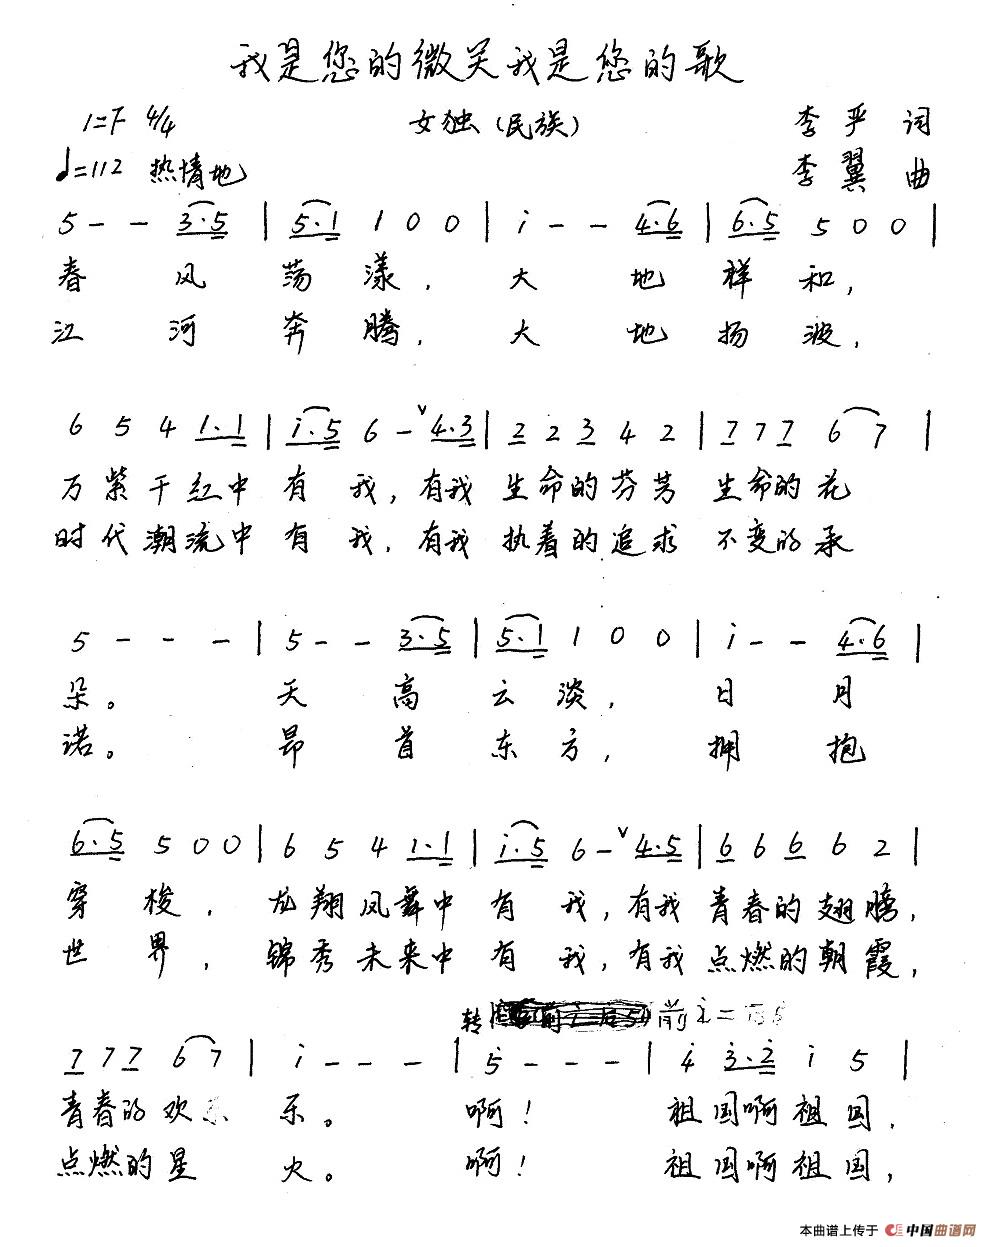 我是您的微笑我是您的歌
1=F 4/4 女独（民族） 李严 词
♩=112 热情地 李翼 曲
5 - - 3·5 | 5·1 1 0 0 | i - - 4·6 | 6·5 5 0 0 |
春风荡漾，大地祥和，
江河奔腾，大地扬波，
6 5 4 1·1 | i·5 6 - ∨ 4·3 | 2 2 3 4 2 | 7 7 7 6 7 |
万紫千红中有我，有我生命的芬芳 生命的花
时代潮流中有我，有我执着的追求 不变的承
5 - - - | 5 - - 3·5 | 5·1 1 0 0 | i - - 4·6 |
朵。天高云淡，日月
诺。昂首东方，拥抱
6·5 5 0 0 | 6 5 4 1·1 | i·5 6 - ∨ 4·5 | 6 6 6 6 2 |
穿梭，龙翔凤舞中有我，有我青春的翅膀，
世界，锦秀未来中有我，有我点燃的朝霞，
转 前 i =
7 7 7 6 7 | i - - - | 5 - - - | 4 3·2 i 5 |
青春的欢乐。啊！祖国啊祖国，
点燃的星火。啊！祖国啊祖国，
本曲谱上传于 中国曲谱网